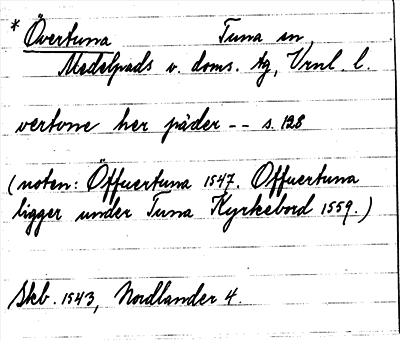 * Övertuna Tuna sn
Medelpads v. doms. tg, Vrnl. l.
vertone her päder -- s. 128
(noten: Öffuertuna 1547. Offuertuna
ligger under Tuna Kyrkebord 1559.)
Skb. 1543, Nordlander 4.